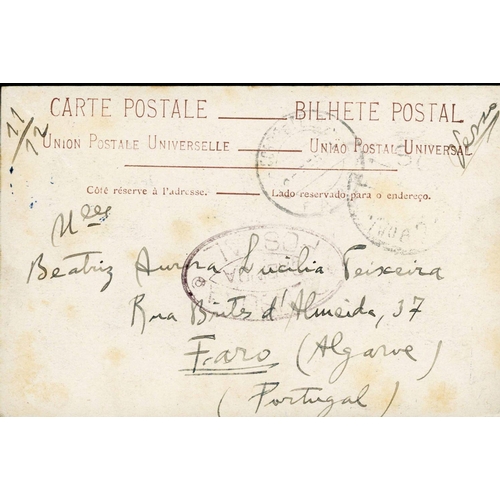 CARTE POSTALE BILHETE POSTAL
UNION POSTALE UNIVERSELLE UNIAO POSTAL UNIVERSAL
Côté réserve à l'adresse. Lado reservado para o endereço.
11/12
Mlles
Beatriz Aurora Lucilia Teixeira
Rua Brites d'Almeida, 37
Faro (Algarve)
(Portugal)